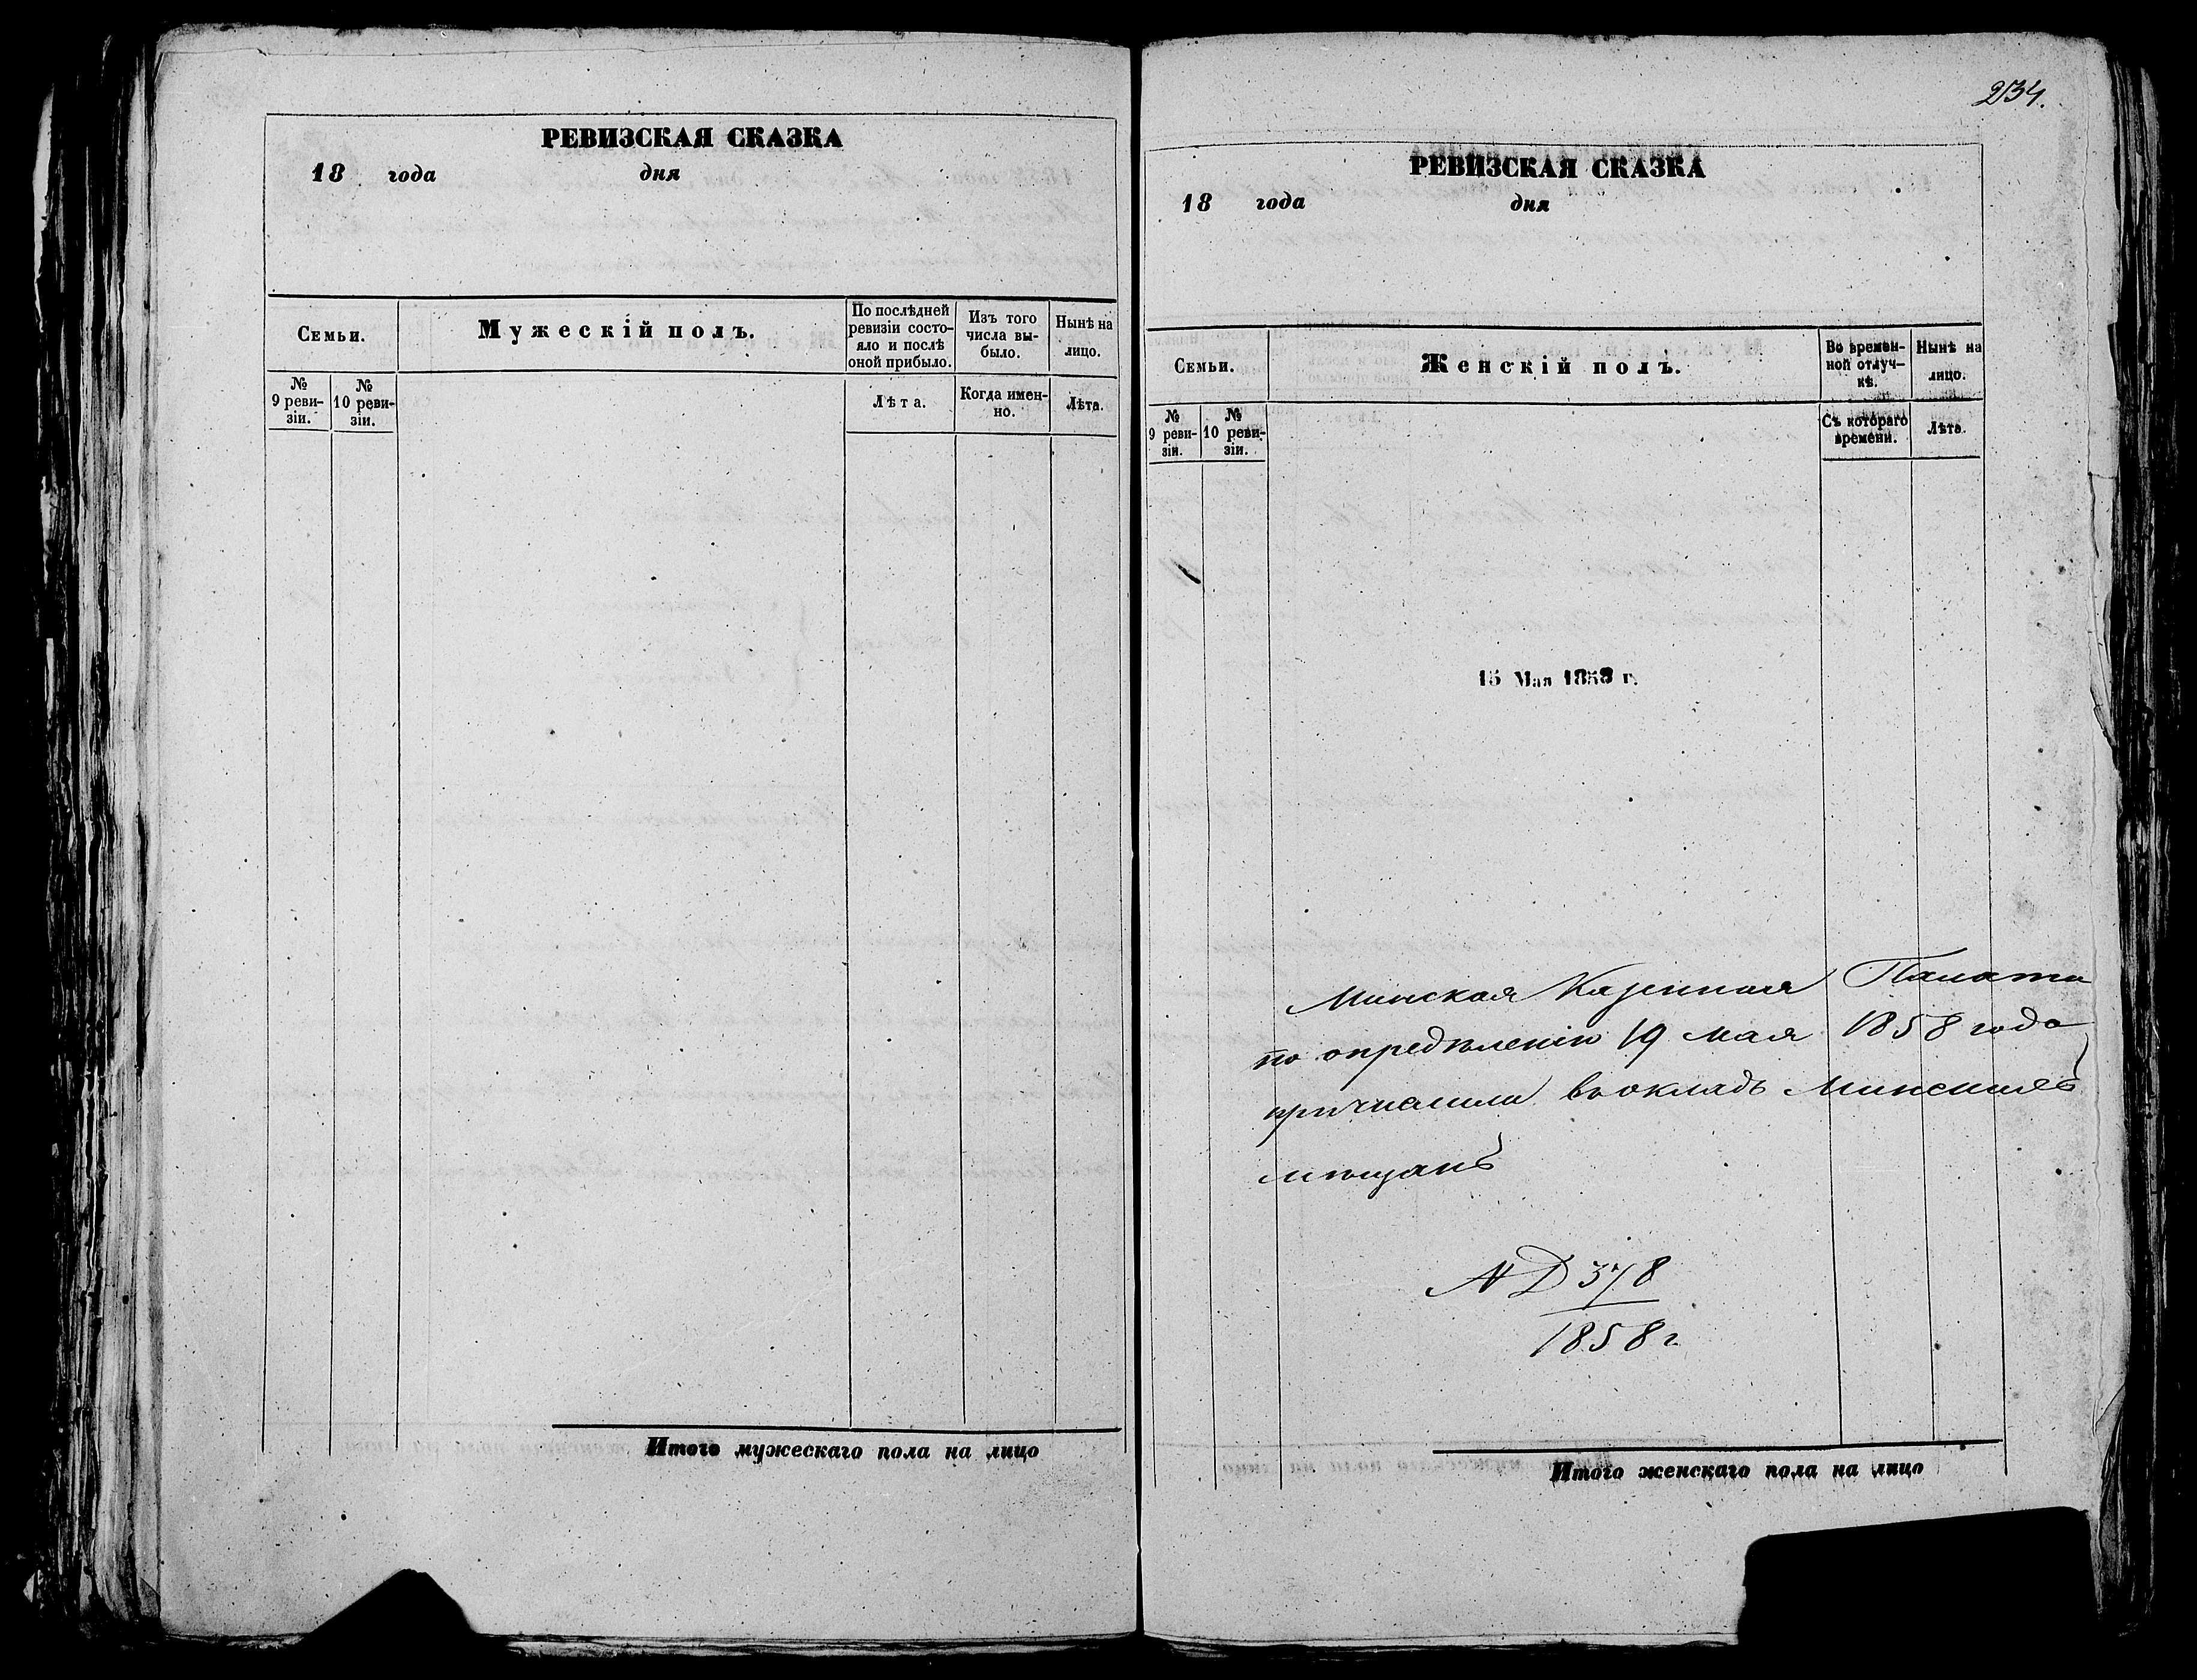 РЕВИЗСКАЯ СКАЗКА
18 года дня
Семьи.
Мужескій полъ.
По послѣдней
ревизіи состо-
яло и послѣ
оной прибыло.
Изъ того
числа вы-
было.
Нынѣ на
лицо.
№
9 реви-
зіи.
№
10 реви-
зіи.
Лѣта.
Когда имен-
но.
Лѣта.
Итого мужескаго пола на лицо
234.
РЕВИЗСКАЯ СКАЗКА
18 года дня
Семьи.
Женскій полъ.
Во времен-
ной отлуч-
кѣ.
Нынѣ на
лицо.
№
9 реви-
зіи.
№
10 реви-
зіи.
Съ котораго
времени.
Лѣта.
15 Мая 1858 г.
Минская Казенная Палата
по опредѣленію 19 мая 1858 года
причислила въ окладъ Минскихъ
мѣщанъ
N D 378
1858 г
Итого женскаго пола на лицо